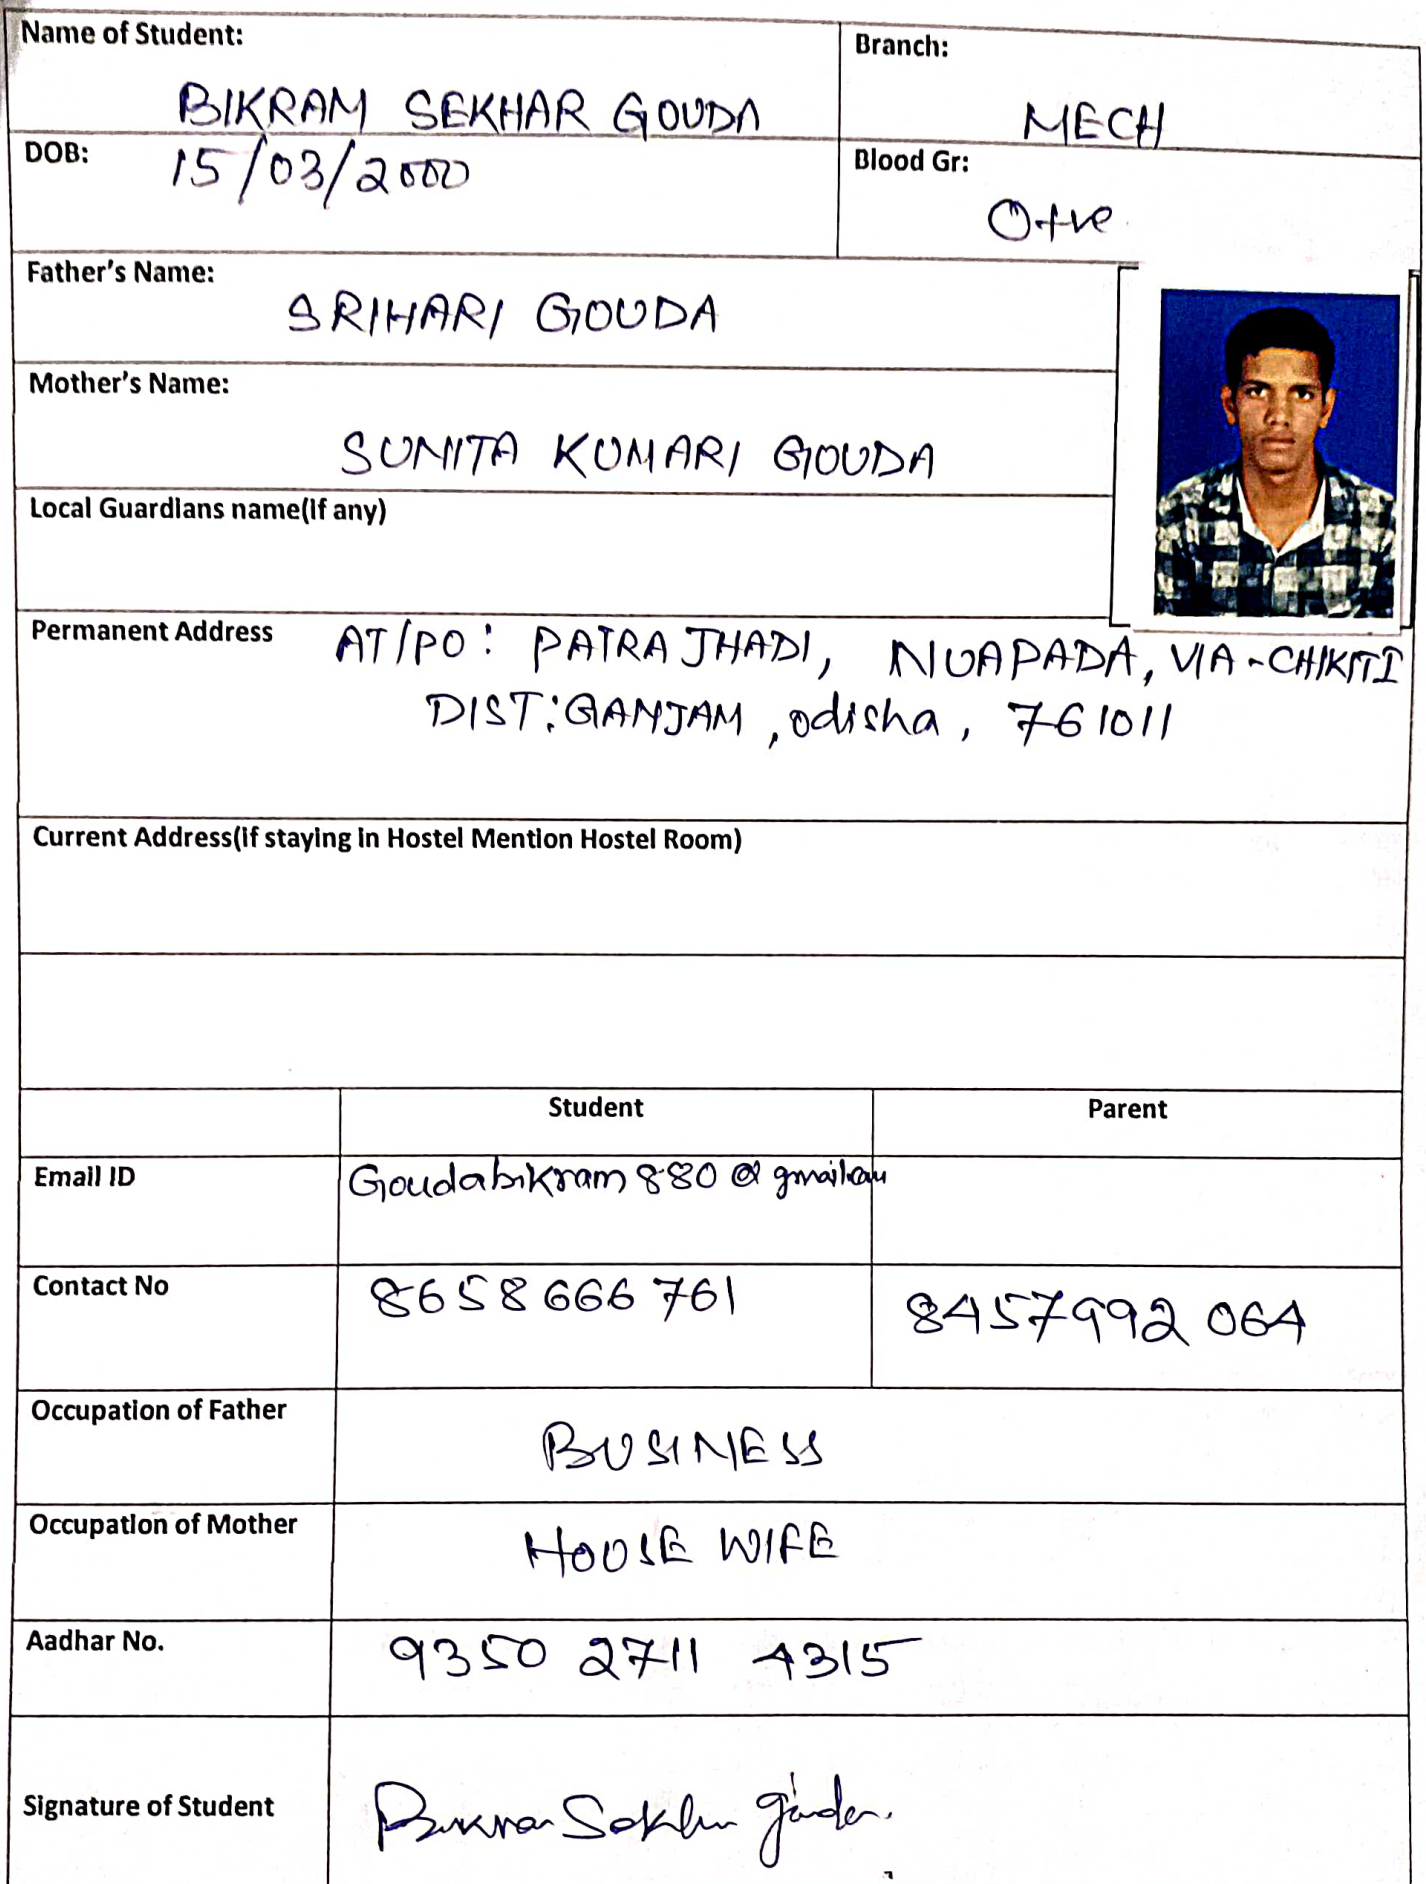 Name of Student:
BIKRAM SEKHAR GOUDA
Branch:
MECH
DOB: 15/03/2000
Blood Gr:
O+ve
Father's Name:
SRIHARI GOUDA
Mother's Name:
SUNITA KUMARI GOUDA
Local Guardians name(If any)
Permanent Address AT/PO: PATRA JHADI, NUAPADA, VIA-CHIKITI
DIST: GANJAM, odisha, 761011
Current Address(If staying in Hostel Mention Hostel Room)
Student Parent
Email ID Goudabikram880@gmail.com
Contact No 8658666761 8457992064
Occupation of Father BUSINESS
Occupation of Mother HOUSE WIFE
Aadhar No. 9350 2711 4315
Signature of Student